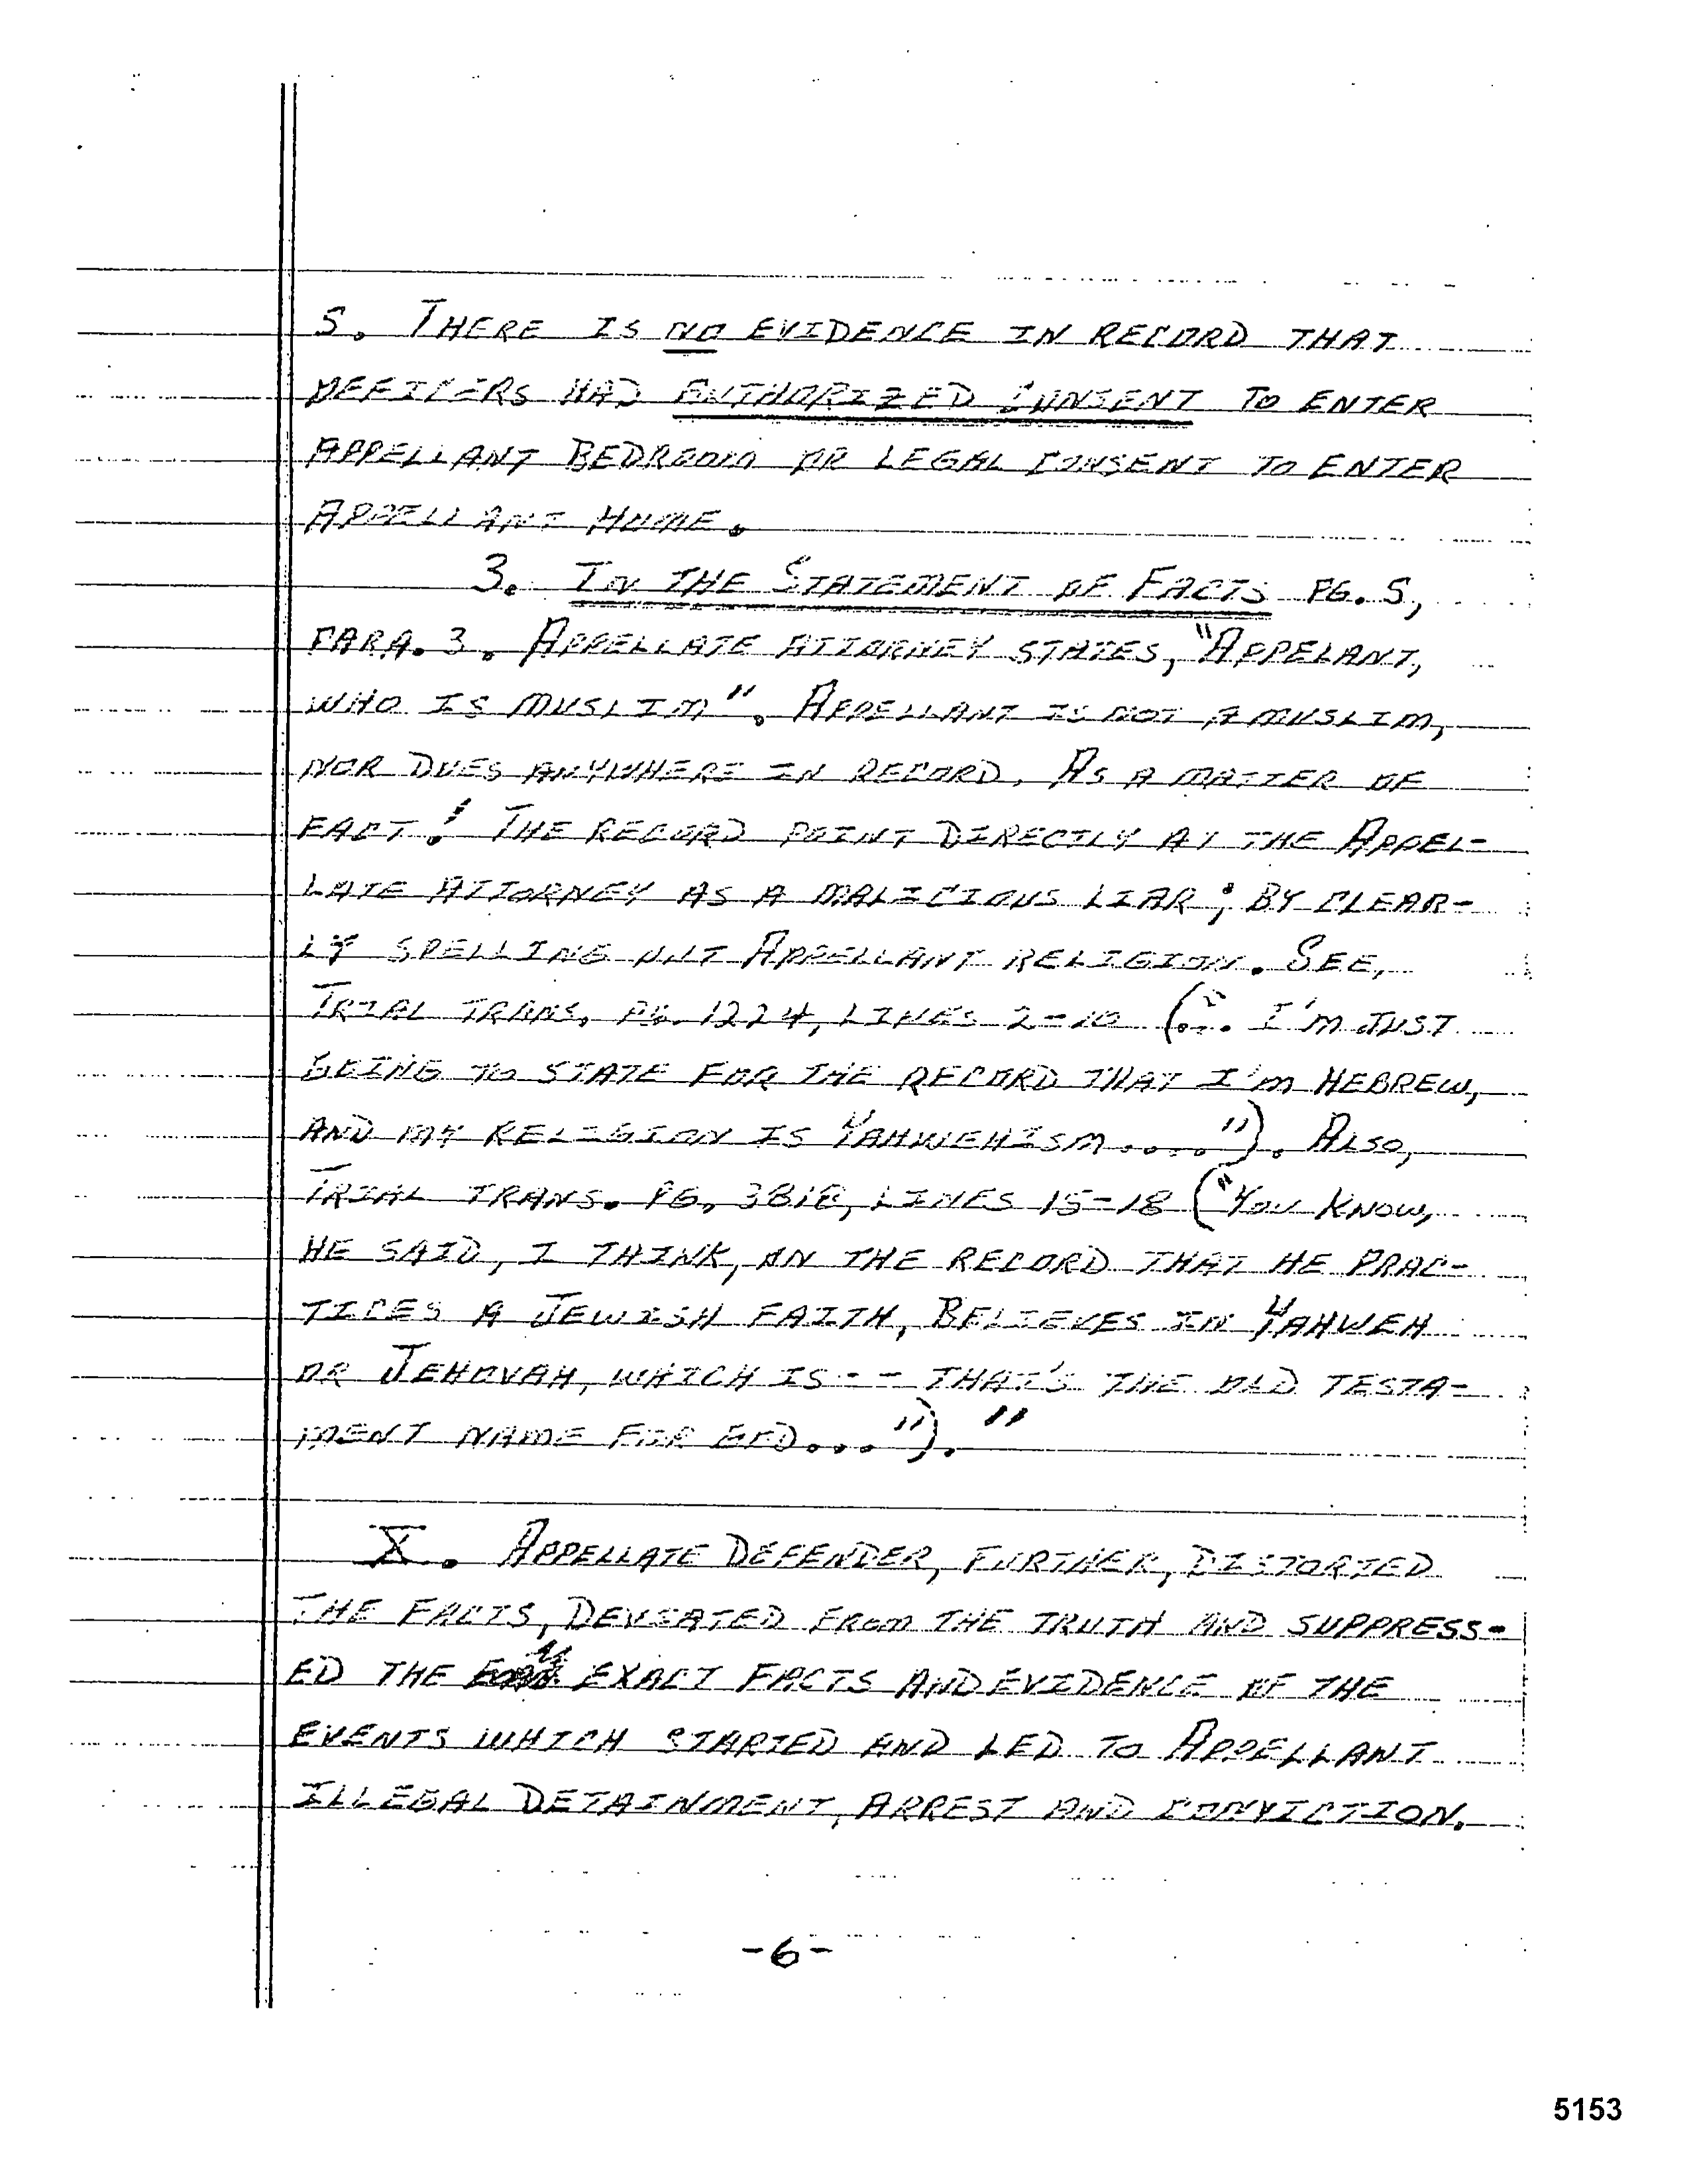 5. THERE IS NO EVIDENCE IN RECORD THAT
OFFICERS HAD AUTHORIZED CONSENT TO ENTER
APPELLANT BEDROOM OR LEGAL CONSENT TO ENTER
APPELLANT HOME.
3. IN THE STATEMENT OF FACTS PG. 5,
PARA. 3. APPELLATE ATTORNEY STATES, "APPELANT,
WHO IS MUSLIM". APPELLANT IS NOT A MUSLIM,
NOR DOES ANYWHERE IN RECORD. AS A MATTER OF
FACT! THE RECORD POINT DIRECTLY AT THE APPEL-
LATE ATTORNEY AS A MALICIOUS LIAR; BY CLEAR-
LY SPELLING OUT APPELLANT RELIGION. SEE,
TRIAL TRANS. PG. 1224, LINES 2-10 ("... I'M JUST
GOING TO STATE FOR THE RECORD THAT I'M HEBREW,
AND MY RELIGION IS YAHWEHISM...."). ALSO,
TRIAL TRANS. PG. 3818, LINES 15-18 ("YOU KNOW,
HE SAID, I THINK, ON THE RECORD THAT HE PRAC-
TICES A JEWISH FAITH, BELIEVES IN YAHWEH
OR JEHOVAH, WHICH IS -- THAT'S THE OLD TESTA-
MENT NAME FOR GOD..."). "
X. APPELLATE DEFENDER, FURTHER, DISTORTED
THE FACTS, DEVIATED FROM THE TRUTH AND SUPPRESS-
ED THE EXACT FACTS AND EVIDENCE OF THE
EVENTS WHICH STARTED AND LED TO APPELLANT
ILLEGAL DETAINMENT, ARREST AND CONVICTION.
-6-
5153